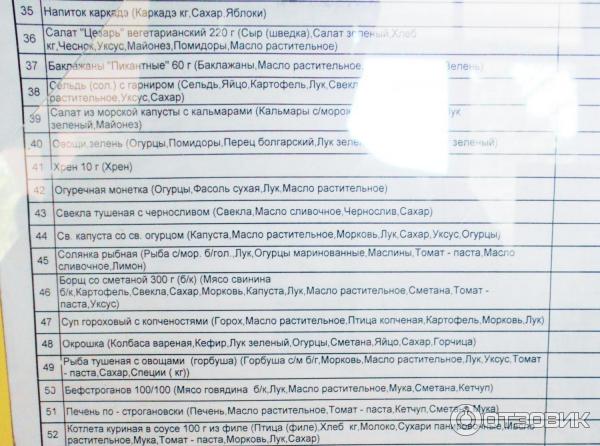 35 Напиток каркадэ (Каркадэ кг,Сахар,Яблоки)
36 Салат "Цезарь" вегетарианский 220 г (Сыр (шведка),Салат зеленый,Хлеб
кг,Чеснок,Уксус,Майонез,Помидоры,Масло растительное)
37 Баклажаны "Пикантные" 60 г (Баклажаны,Масло растительное,
38 Сельдь (сол.) с гарниром (Сельдь,Яйцо,Картофель,Лук,Свекла
растительное,Уксус,Сахар)
39 Салат из морской капусты с кальмарами (Кальмары с/морож
зеленый,Майонез)
40 Овощи,зелень (Огурцы,Помидоры,Перец болгарский,Лук зеленый)
41 Хрен 10 г (Хрен)
42 Огуречная монетка (Огурцы,Фасоль сухая,Лук,Масло растительное)
43 Свекла тушеная с черносливом (Свекла,Масло сливочное,Чернослив,Сахар)
44 Св. капуста со св. огурцом (Капуста,Масло растительное,Морковь,Лук,Сахар,Уксус,Огурцы)
45 Солянка рыбная (Рыба с/мор. б/гол.,Лук,Огурцы маринованные,Маслины,Томат - паста,Масло
сливочное,Лимон)
46 Борщ со сметаной 300 г (б/к) (Мясо свинина
б/к,Картофель,Свекла,Сахар,Морковь,Капуста,Лук,Масло растительное,Сметана,Томат -
паста,Уксус)
47 Суп гороховый с копченостями (Горох,Масло растительное,Птица копченая,Картофель,Морковь,Лук)
48 Окрошка (Колбаса вареная,Кефир,Лук зеленый,Огурцы,Сметана,Яйцо,Сахар,Горчица)
49 Рыба тушеная с овощами (горбуша) (Горбуша с/м б/г,Морковь,Масло растительное,Лук,Уксус,Томат
- паста,Сахар,Специи ( кг))
50 Бефстроганов 100/100 (Мясо говядина б/к,Лук,Масло растительное,Мука,Сметана,Кетчуп)
51 Печень по - строгановски (Печень,Масло растительное,Томат - паста,Кетчуп,Сметана,Мука)
52 Котлета куриная в соусе 100 г из филе (Птица (филе),Хлеб кг,Молоко,Сухари панировочные,Масло
растительное,Мука,Томат - паста,Морковь,Лук,Сахар)
ОТЗОВИК